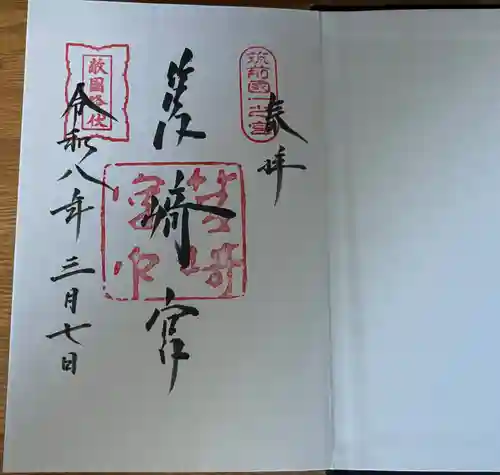 奉拝
筑前國一之宮
筥崎宮
筥崎宮印
敵國降伏
令和八年三月七日